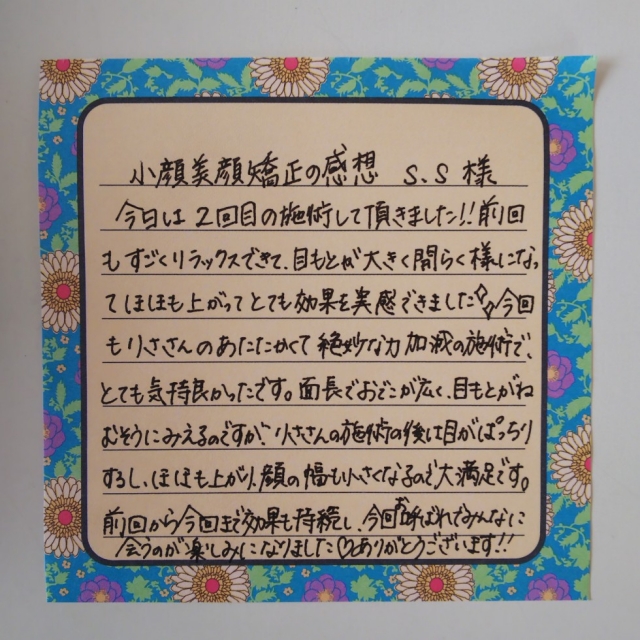 小顔美顔矯正の感想 S.S 様
今日は2回目の施術して頂きました!!前回
もすごくリラックスできて、目もとが大きく開らく様になっ
てほほも上がってとても効果を実感できました✧今回
もりささんのあたたかくて絶妙な力加減の施術で、
とても気持良かったです。面長でおでこが広く、目もとがね
むそうにみえるのですが、りささんの施術の後は目がぱっちり
するし、ほほも上がり、顔の幅も小さくなるので大満足です。
前回から今回まで効果も持続し、今回お呼ばれでみんなに
会うのが楽しみになりました♡ありがとうございます!!